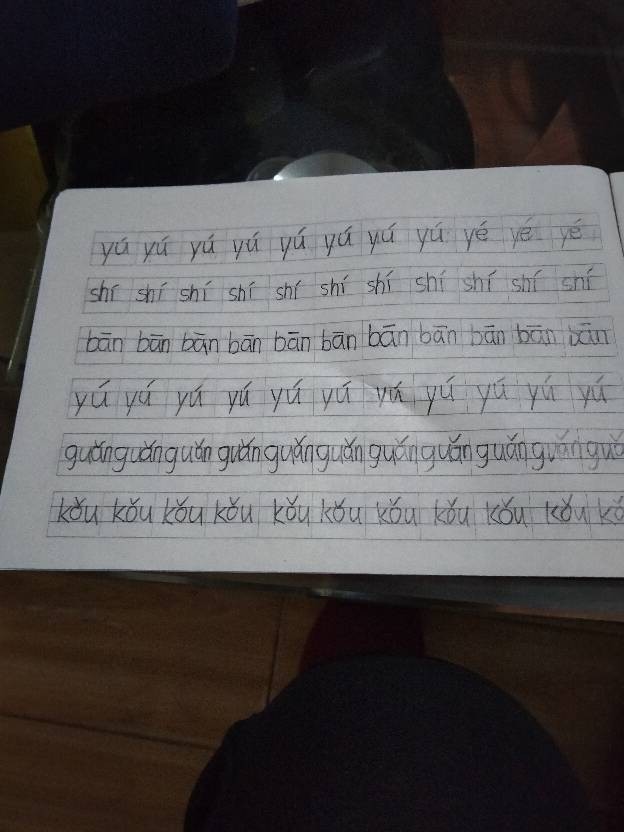 yú yú yú yú yú yú yú yú yé yé yé
shí shí shí shí shí shí shí shí shí shí shí
bān bān bān bān bān bān bān bān bān bān bān
yú yú yú yú yú yú yú yú yú yú yú
guǎn guǎn guǎn guǎn guǎn guǎn guǎn guǎn guǎn guǎn guǎ
kǒu kǒu kǒu kǒu kǒu kǒu kǒu kǒu kǒu kǒu kǒ